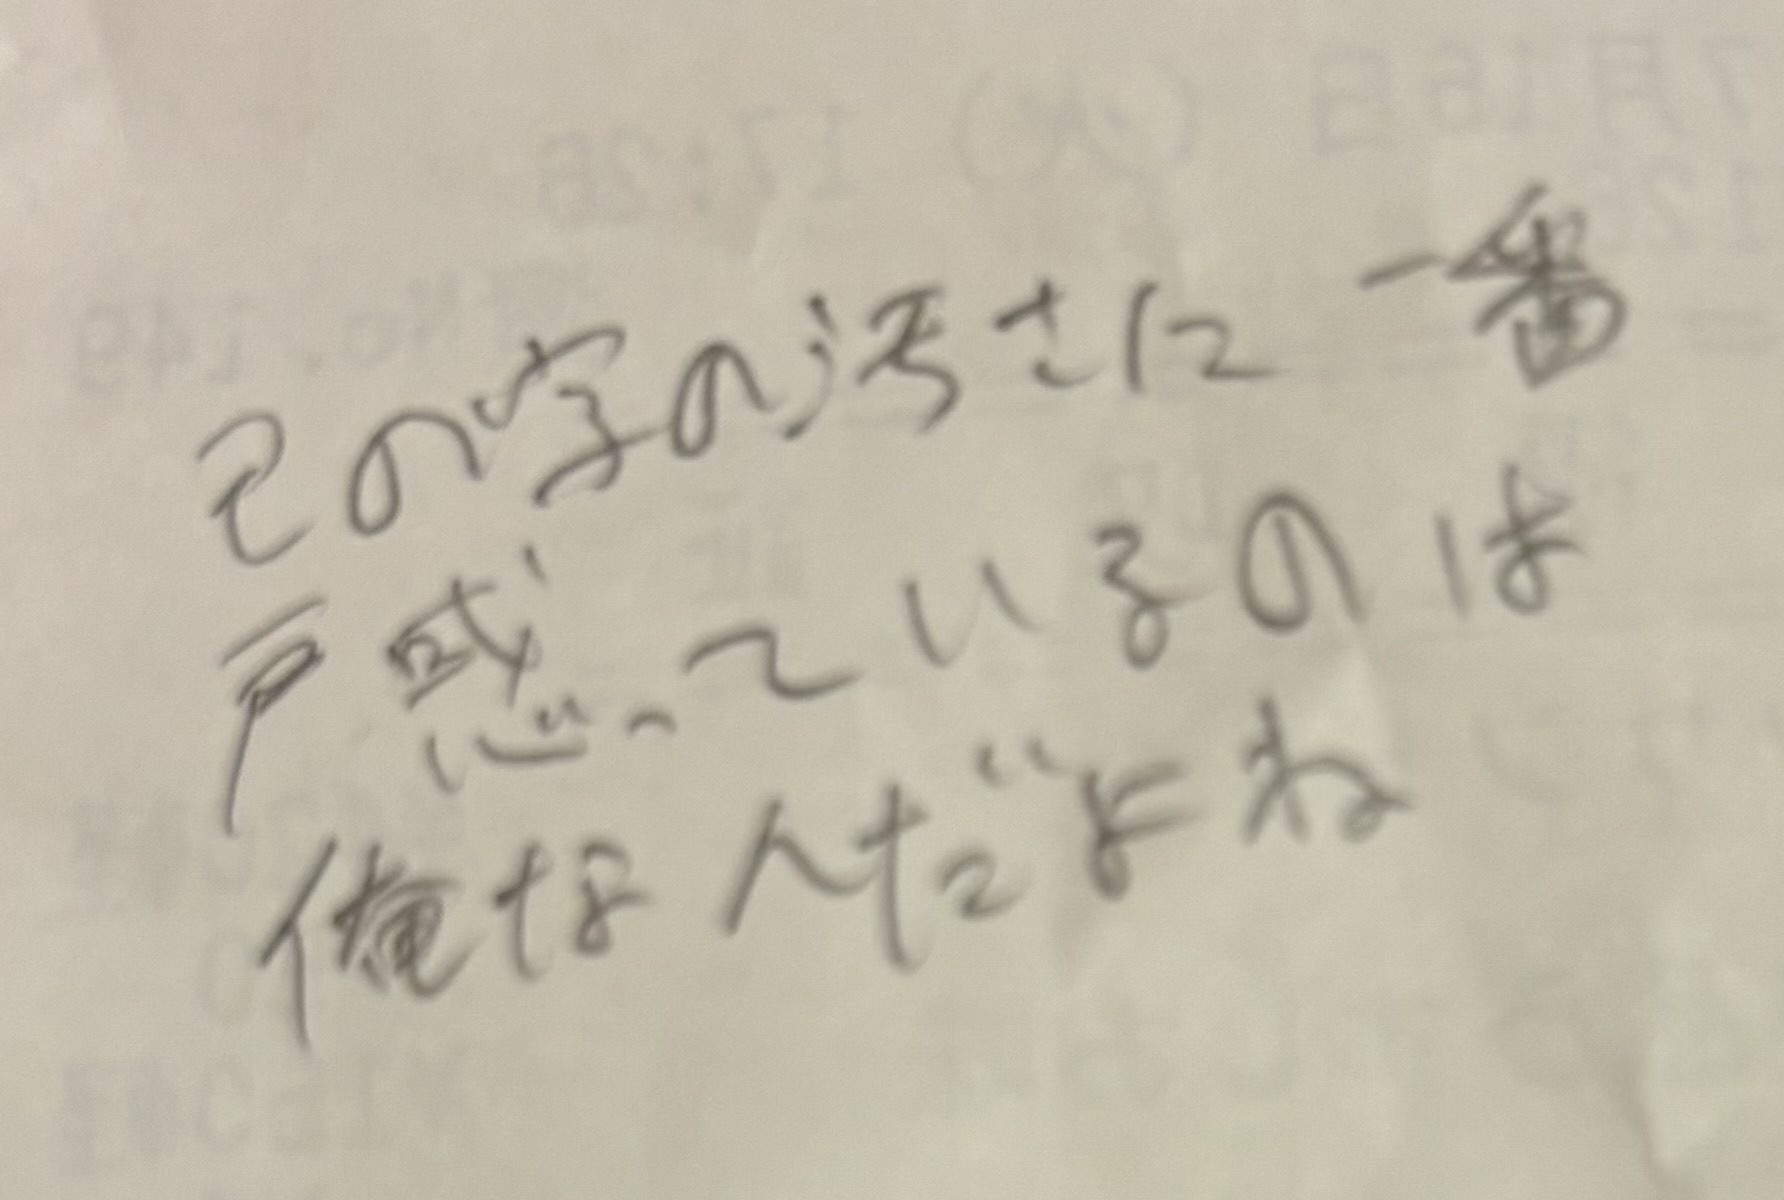 この字の汚さに一番
戸惑っているのは
俺なんだよね